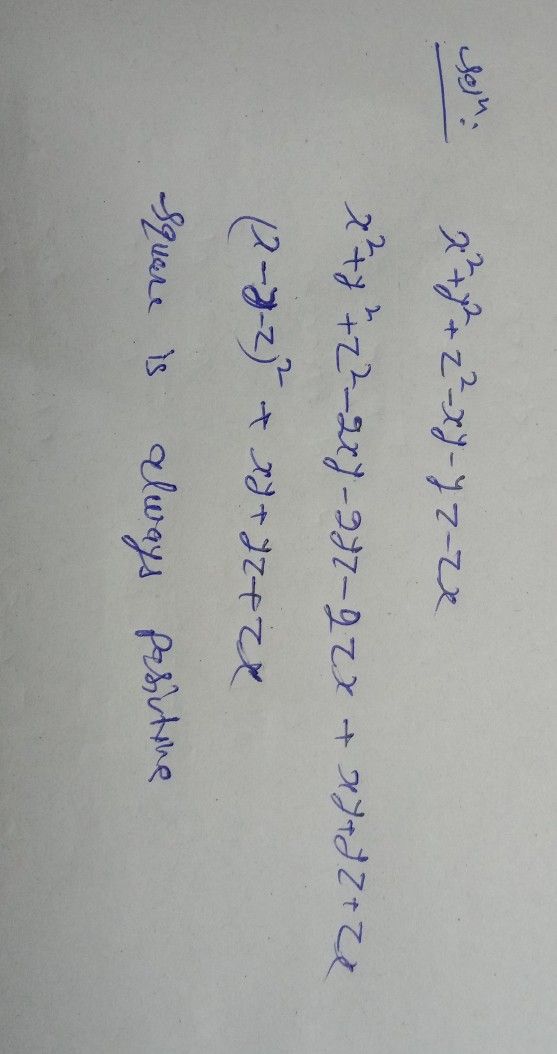 Solⁿ:
x²+y²+z²-xy-yz-zx
x²+y²+z²-2xy-2yz-2zx + xy+yz+zx
(x-y-z)² + xy+yz+zx
square is always positive